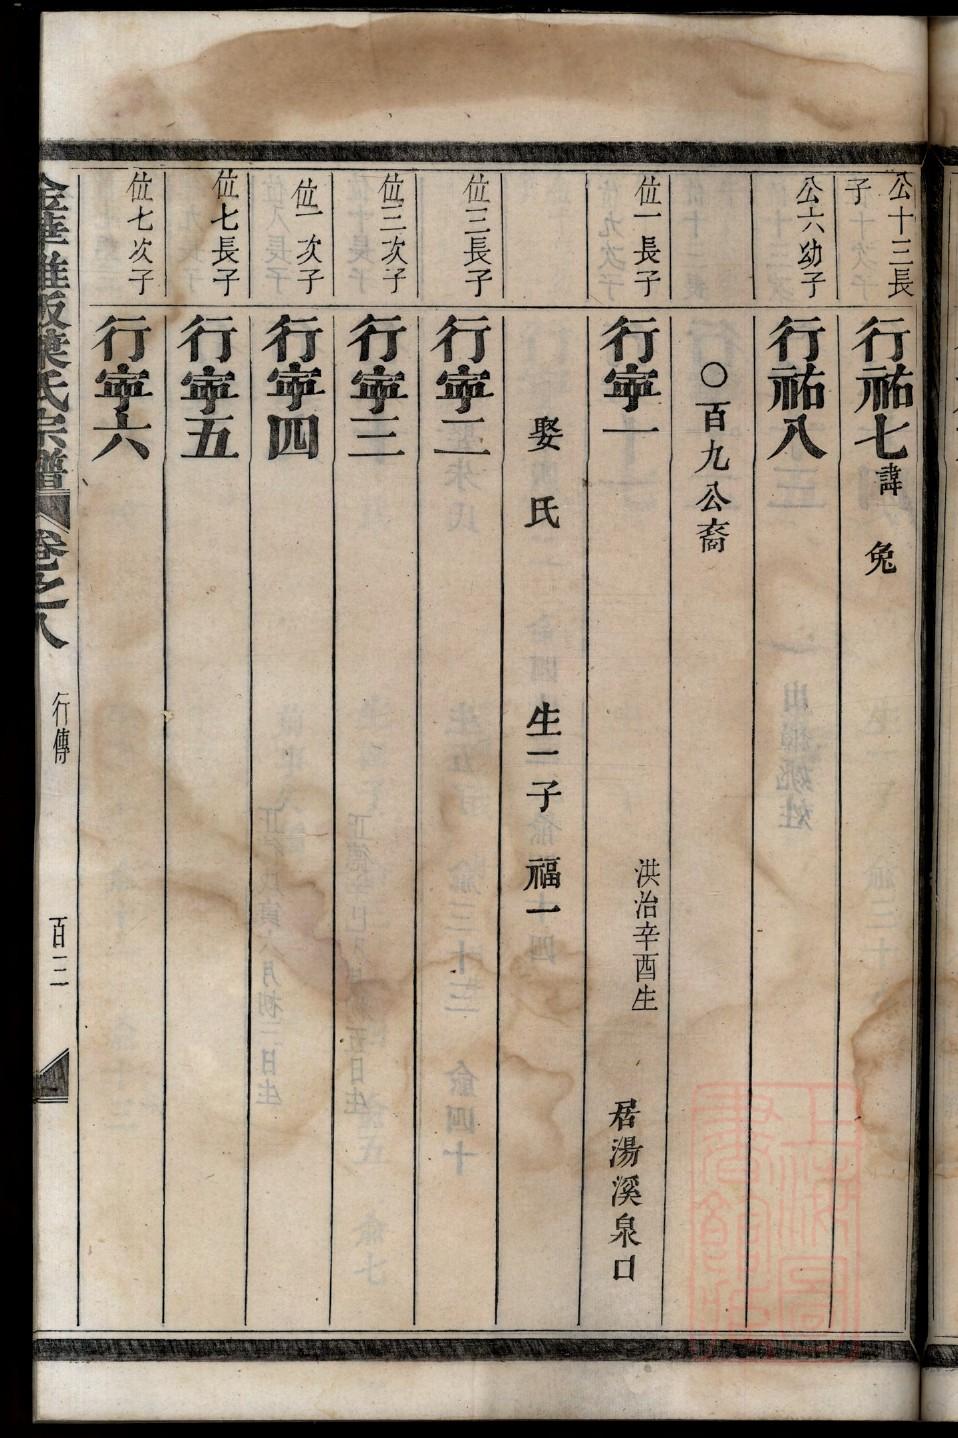 公十三長子
行祐七諱 兔
公六幼子
行祐八
○百九公裔
位一長子
行寧一 洪治辛酉生 居湯溪泉口
娶 氏 生一子 福一
位三長子
行寧二
位三次子
行寧三
位一次子
行寧四
位七長子
行寧五
位七次子
行寧六
金華 派葉氏宗譜 卷之八 行傳 百三